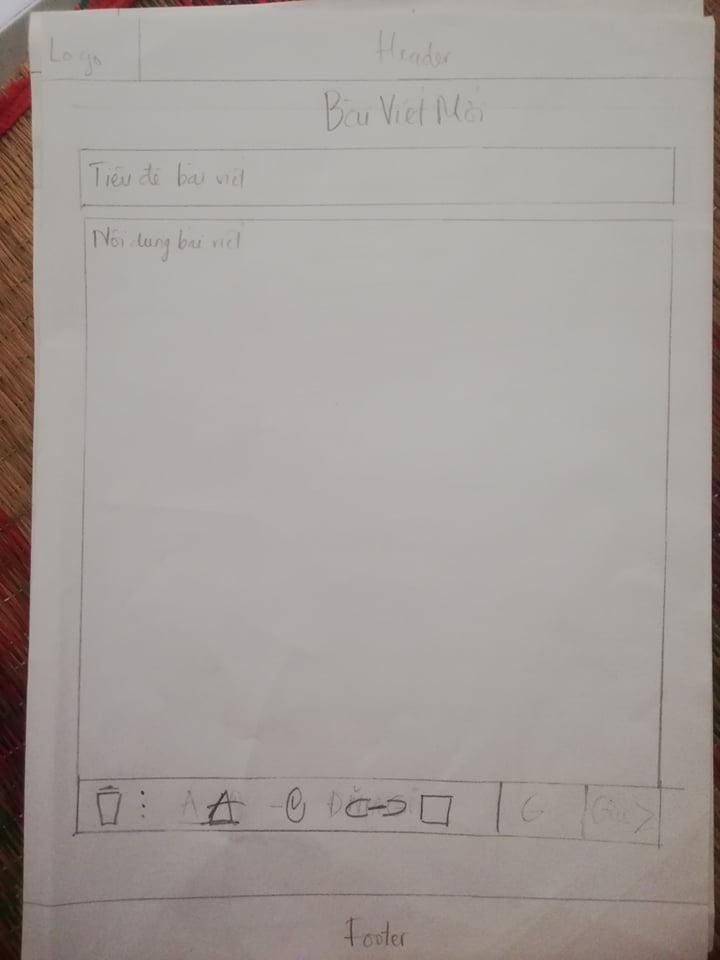 Logo
Header
Bài Viết Mới
Tiêu đề bài viết
Nội dung bài viết
A
Footer